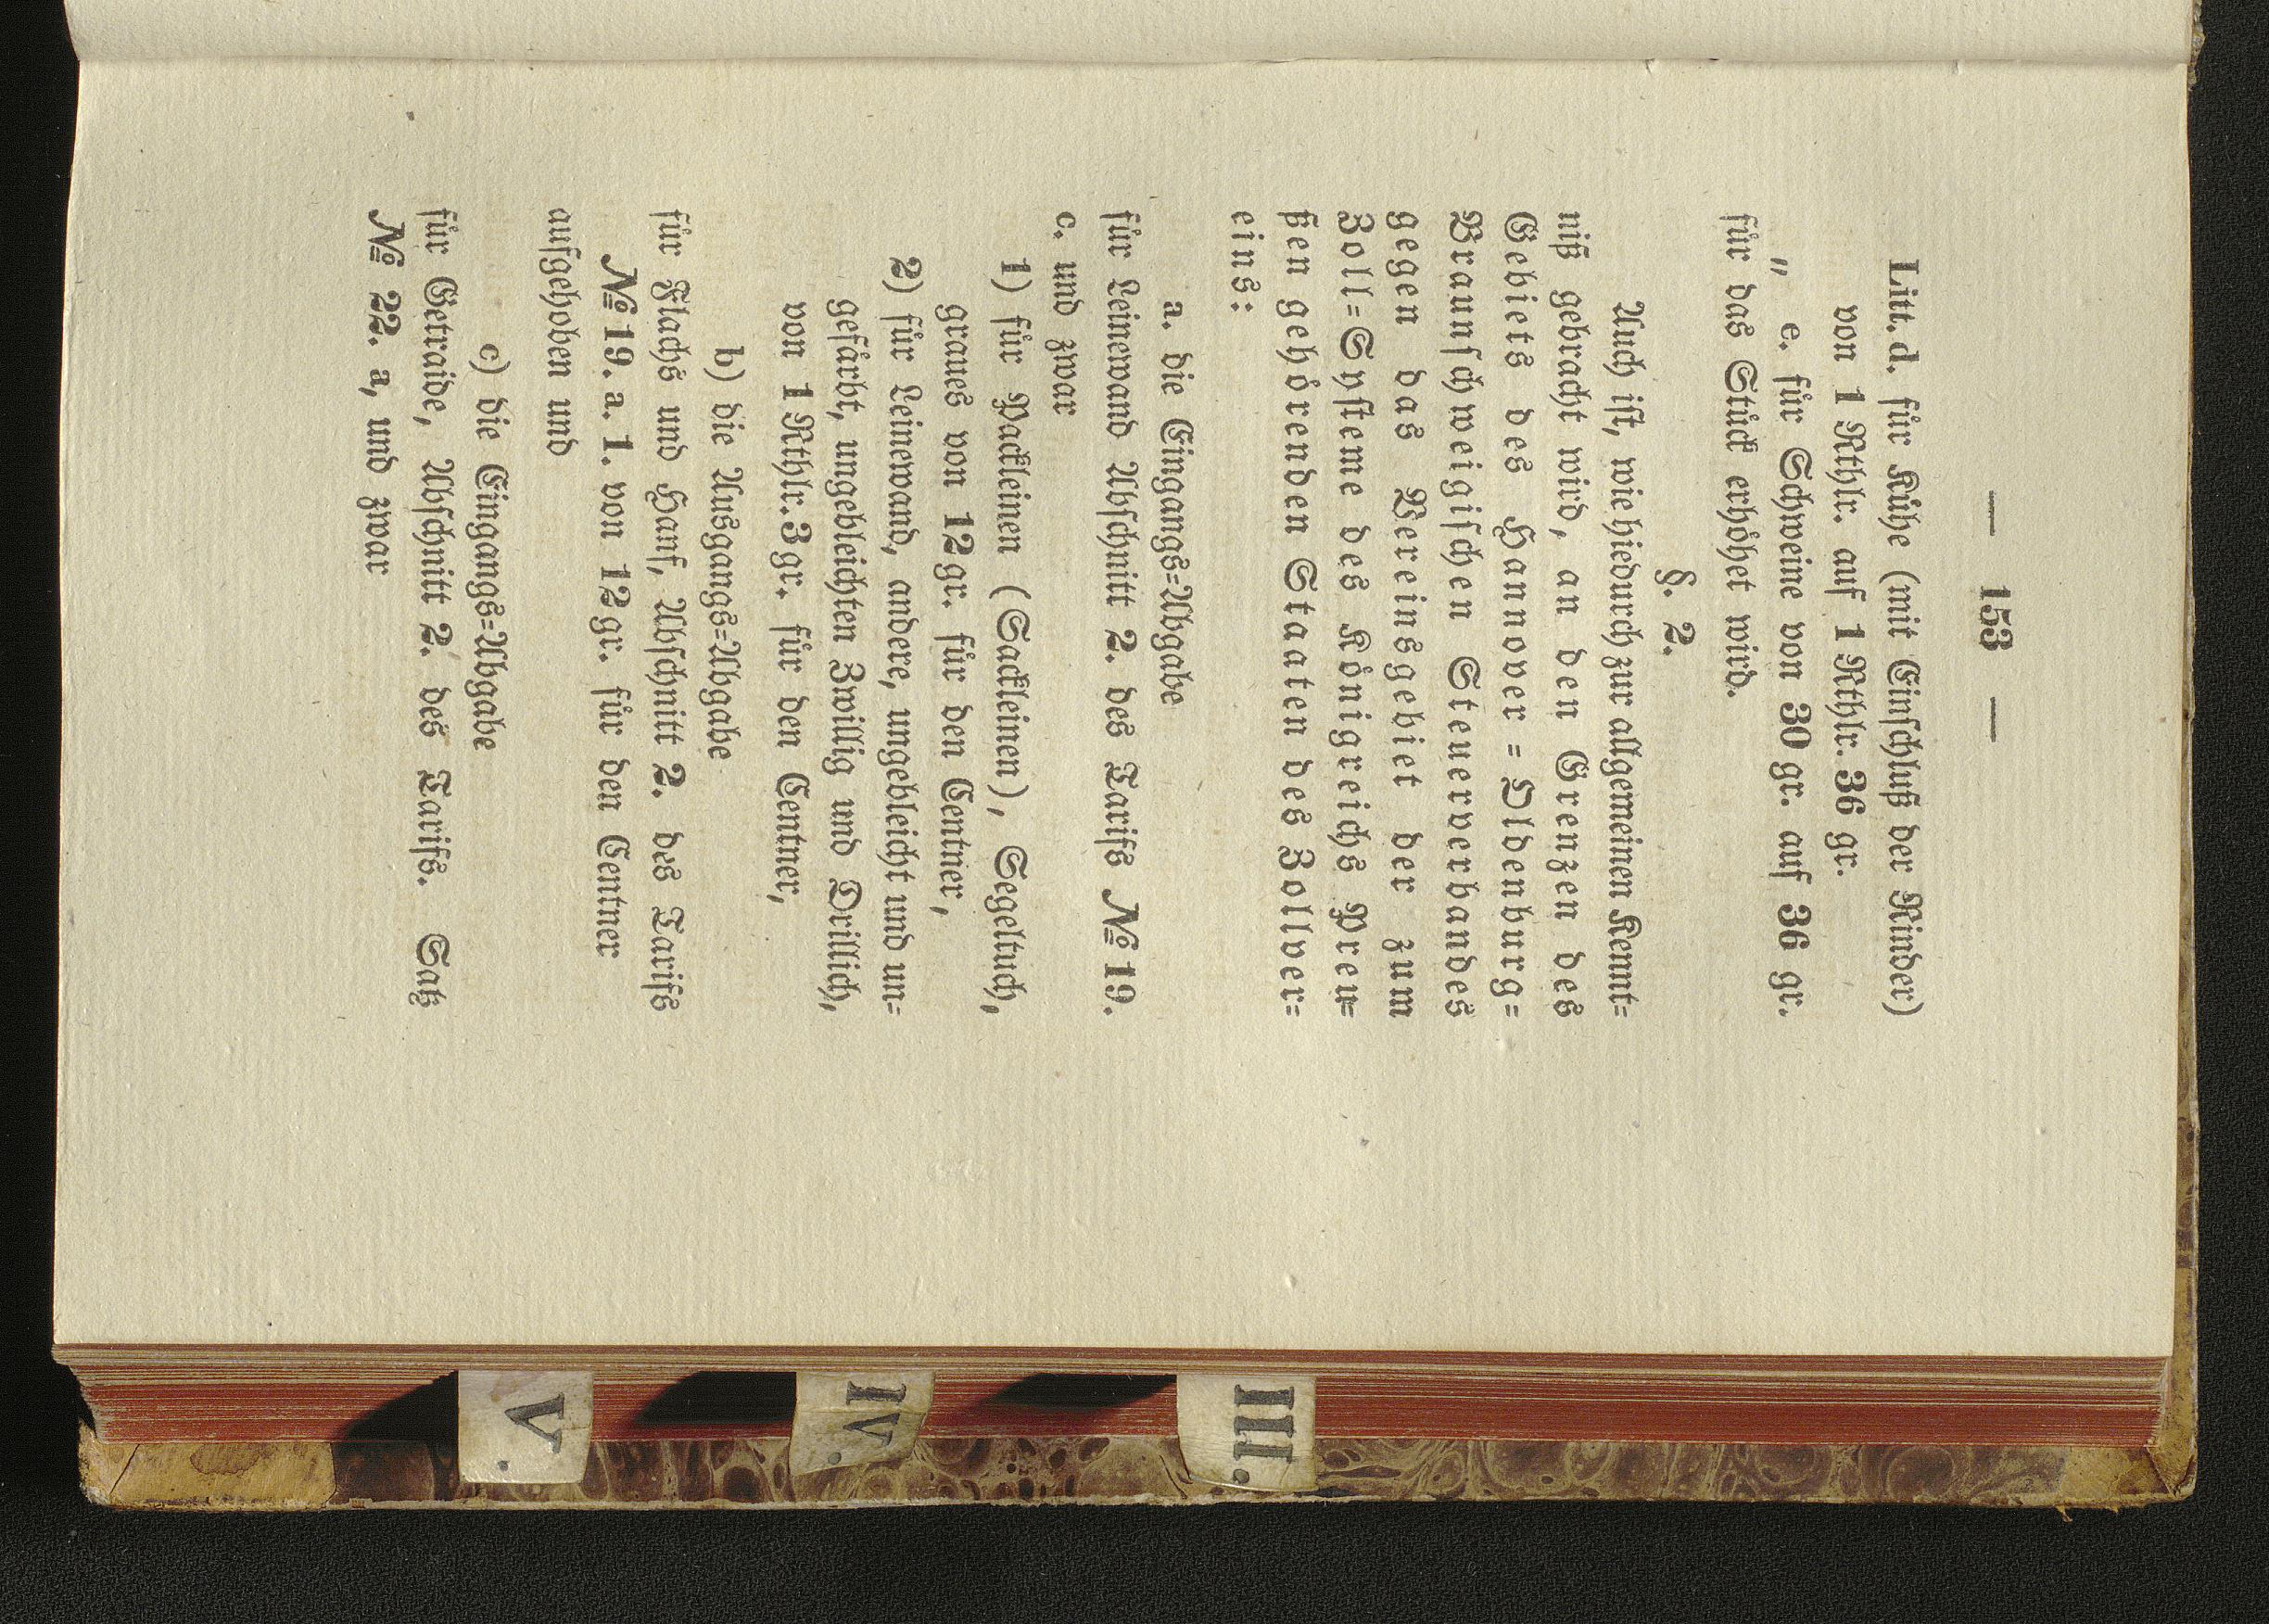 — 153 —
Litt. d. für Kühe (mit Einschluß der Rinder)
von 1 Rthlr. auf 1 Rthlr. 36 gr.
„ e. für Schweine von 30 gr. auf 36 gr.
für das Stück erhöhet wird.
§. 2.
Auch ist, wie hiedurch zur allgemeinen Kennt=
niß gebracht wird, an den Grenzen des
Gebiets des Hannover=Oldenburg=
Braunschweigischen Steuerverbandes
gegen das Vereinsgebiet der zum
Zoll=Systeme des Königreichs Preu=
ßen gehörenden Staaten des Zollver=
eins:
a. die Eingangs=Abgabe
für Leinewand Abschnitt 2. des Tarifs № 19.
c. und zwar
1) für Packleinen (Sackleinen), Segeltuch,
graues von 12 gr. für den Centner,
2) für Leinewand, andere, ungebleicht und un=
gefärbt, ungebleichten Zwillig und Drillich,
von 1 Rthlr. 3 gr. für den Centner,
b) die Ausgangs=Abgabe
für Flachs und Hanf, Abschnitt 2. des Tarifs
№ 19. a. 1. von 12 gr. für den Centner
aufgehoben und
c) die Eingangs=Abgabe
für Getraide, Abschnitt 2. des Tarifs. Satz
№ 22. a, und zwar
III.
IV.
V.